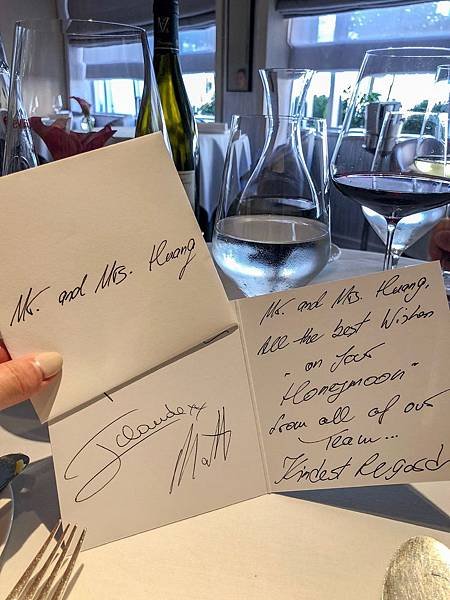 Mr. and Mrs. Hwang
JClaude xx
Matt
Mr. and Mrs. Hwang,
All the best Wishes
"on Your
Honeymoon"
from all of our
Team...
Kindest Regards